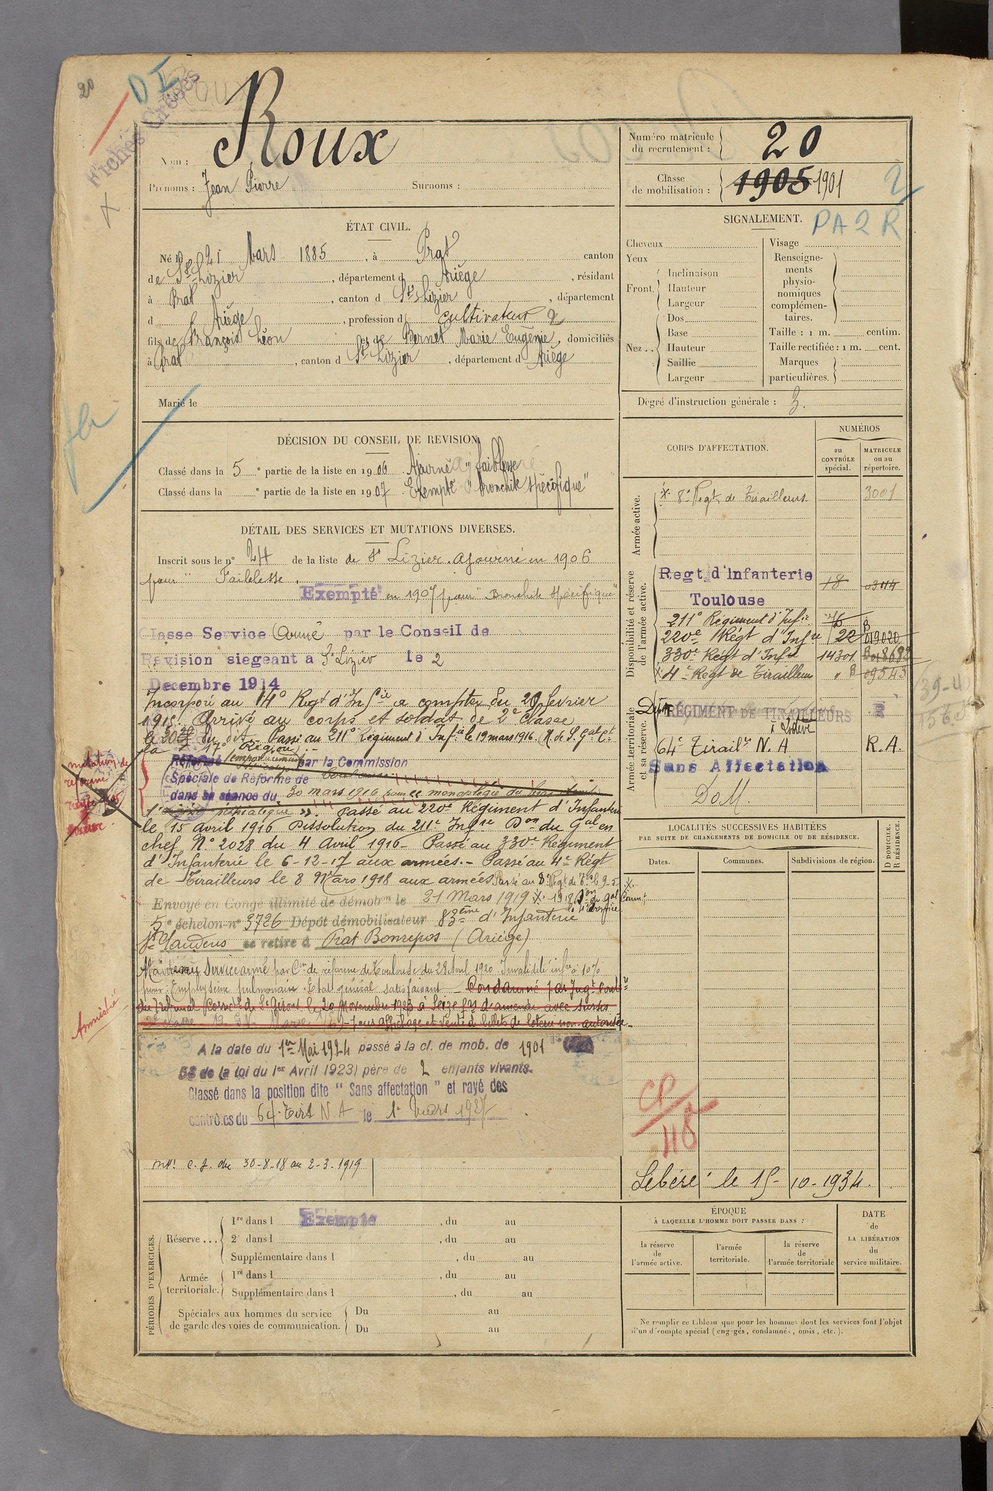 20
D I
Fichés Créés
Nom : Roux
Prénoms : Jean Pierre Surnoms :
Numéro matricule du recrutement : 20
Classe de mobilisation : 1905 1901
2
PA 2 R
ÉTAT CIVIL.
Né le 21 Mars 1885, à Prat canton
de St Lizier, département d Ariège, résidant
à Prat, canton d St Lizier, département
d Ariège, profession d cultivateur 2
fils de François Léon et de Bernet Marie Eugénie, domiciliés
à Prat, canton d St Lizier, département d Ariège
Marié le
SIGNALEMENT.
Cheveux
Yeux
Front. Inclinaison
Hauteur
Largeur
Nez.. Dos
Base
Hauteur
Saillie
Largeur
Visage
Renseignements physionomiques complémentaires.
Taille : 1 m. centim.
Taille rectifiée : 1 m. cent.
Marques particulières.
Degré d'instruction générale : 3.
DÉCISION DU CONSEIL DE REVISION
Classé dans la 5e partie de la liste en 1906 Ajourné faiblesse
Classé dans la e partie de la liste en 1907 Exempté "bronchite spécifique"
DÉTAIL DES SERVICES ET MUTATIONS DIVERSES.
Inscrit sous le n° 24 de la liste de St Lizier. Ajourné en 1906
pour "Faiblesse.
Exempté en 1907 pour "Bronchite spécifique"
Classe Service Armé par le Conseil de
Révision siegeant à St Lizier le 2
Decembre 1914
Incorporé au 14e Regt d'Infie à compter du 20 fevrier
1915. Arrivé au corps et soldat de 2e classe
le dit. Passé au 211e Régiment d'Infie le 19 mars 1916.
la 17e Région
Réformé temporairement par la Commission
Spéciale de Réforme de Toulouse
dans sa séance du 30 mars 1916
Passé au 220e Régiment d'Infanterie
le 15 avril 1916 Dissolution du 211e Infie Don du Gal en
chef N° 2028 du 4 Avril 1916 - Passé au 330e Régiment
d'Infanterie le 6-12-17 aux armées. - Passé au 4e Régt
de Tirailleurs le 8 Mars 1918 aux armées. Passé au 8e Regt de
Envoyé en Congé illimité de démobon le 31 Mars 1919
5e échelon n° 3726 Dépôt démobilisateur 83ème d'Infanterie
St Gaudens se retire à Prat Bonrepos (Ariège)
Maintenu Service armé par Con de réforme de Toulouse du 28 Avril 1920 Invalidité infre à 10%
pour Emphysème pulmonaire. Etat général satisfaisant - Condamné par Jugt cont
du Tribunal Correct de St Girons le 29 novembre 1923 à Seize frs d'amende avec sursis
pour affichage et vente de billets de loterie non autorisée
Amnistié
A la date du 1er Mai 1924 passé à la cl. de mob. de 1901
58 de la loi du 1er Avril 1923) père de 2 enfants vivants.
Classé dans la position dite "Sans affectation" et rayé des
contrôles du 64e Tirs N A le 1er mars 1927
c. J. du 30-8-18 au 2-3-1919
CORPS D'AFFECTATION.
NUMÉROS
au CONTRÔLE spécial.
MATRICULE ou au répertoire.
Armée active.
8e Regt de Tirailleurs 3001
Disponibilité et réserve de l'armée active.
Regt d'Infanterie 18
Toulouse
211e Régiment d'Infie
220e Régt d'Infie 22
330e Régt d'Infie 14301
4e Régt de Tirailleurs 09545
Armée territoriale et sa réserve.
RÉGIMENT DE TIRAILLEURS
64e Tirailrs N. A R. A.
Sans Affectation
DoM
LOCALITÉS SUCCESSIVES HABITÉES
PAR SUITE DE CHANGEMENTS DE DOMICILE OU DE RÉSIDENCE.
Dates. Communes. Subdivisions de région.
D DOMICILE. R RÉSIDENCE.
CP
48
Libéré le 15-10-1934.
PÉRIODES D'EXERCICES.
Réserve ... 1re dans l Exempté, du au
2e dans l, du au
Supplémentaire dans l, du au
Armée territoriale. 1re dans l, du au
Supplémentaire dans l, du au
Spéciales aux hommes du service de garde des voies de communication. Du au
Du au
ÉPOQUE
À LAQUELLE L'HOMME DOIT PASSER DANS :
la réserve de l'armée active.
l'armée territoriale.
la réserve de l'armée territoriale
DATE de LA LIBÉRATION du service militaire.
Ne remplir ce tableau que pour les hommes dont les services font l'objet
d'un décompte spécial (engagés, condamnés, omis, etc.).